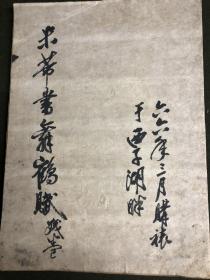 六六年三月購裱
于西子湖畔
米芾書舞鶴賦